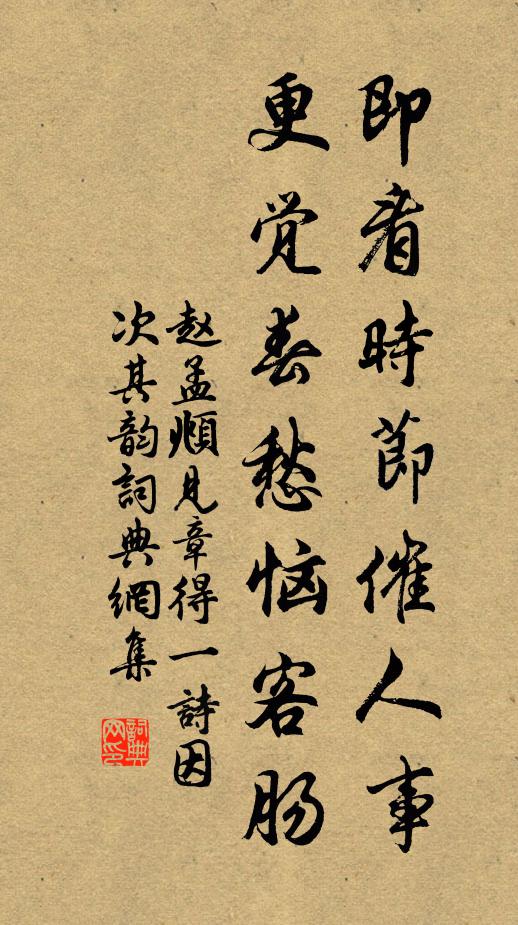 即看時節催人事
更觉春愁恼客肠
赵孟頫见章得一詩因
次其韵詞典網集
詞典网印